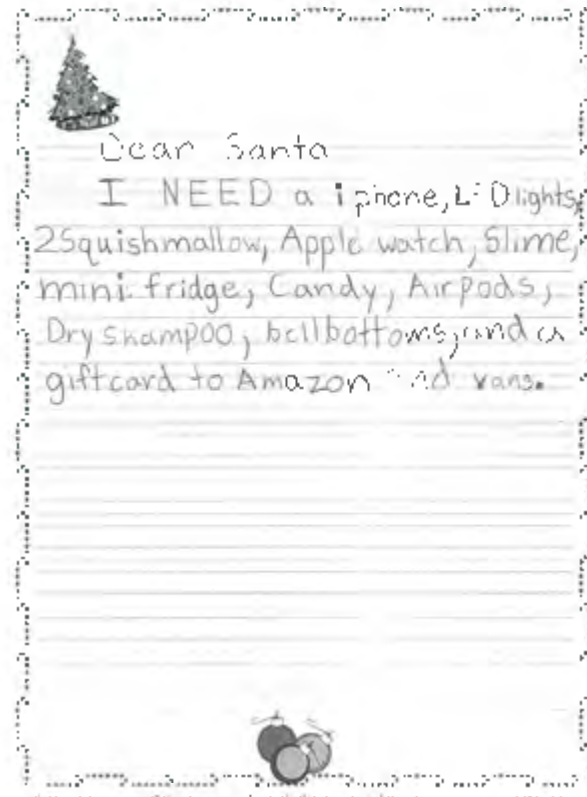 Dear Santa
I NEED a iphone, LED lights,
2Squishmallow, Apple watch, Slime,
mini fridge, Candy, Airpods,
Dry shampoo, bellbottoms, and a
giftcard to Amazon and vans.